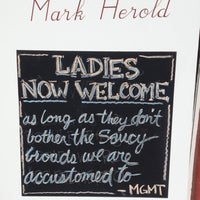 Mark Herold
LADIES
NOW WELCOME
as long as they don't
bother the Saucy
broads we are
accustomed to
- MGMT